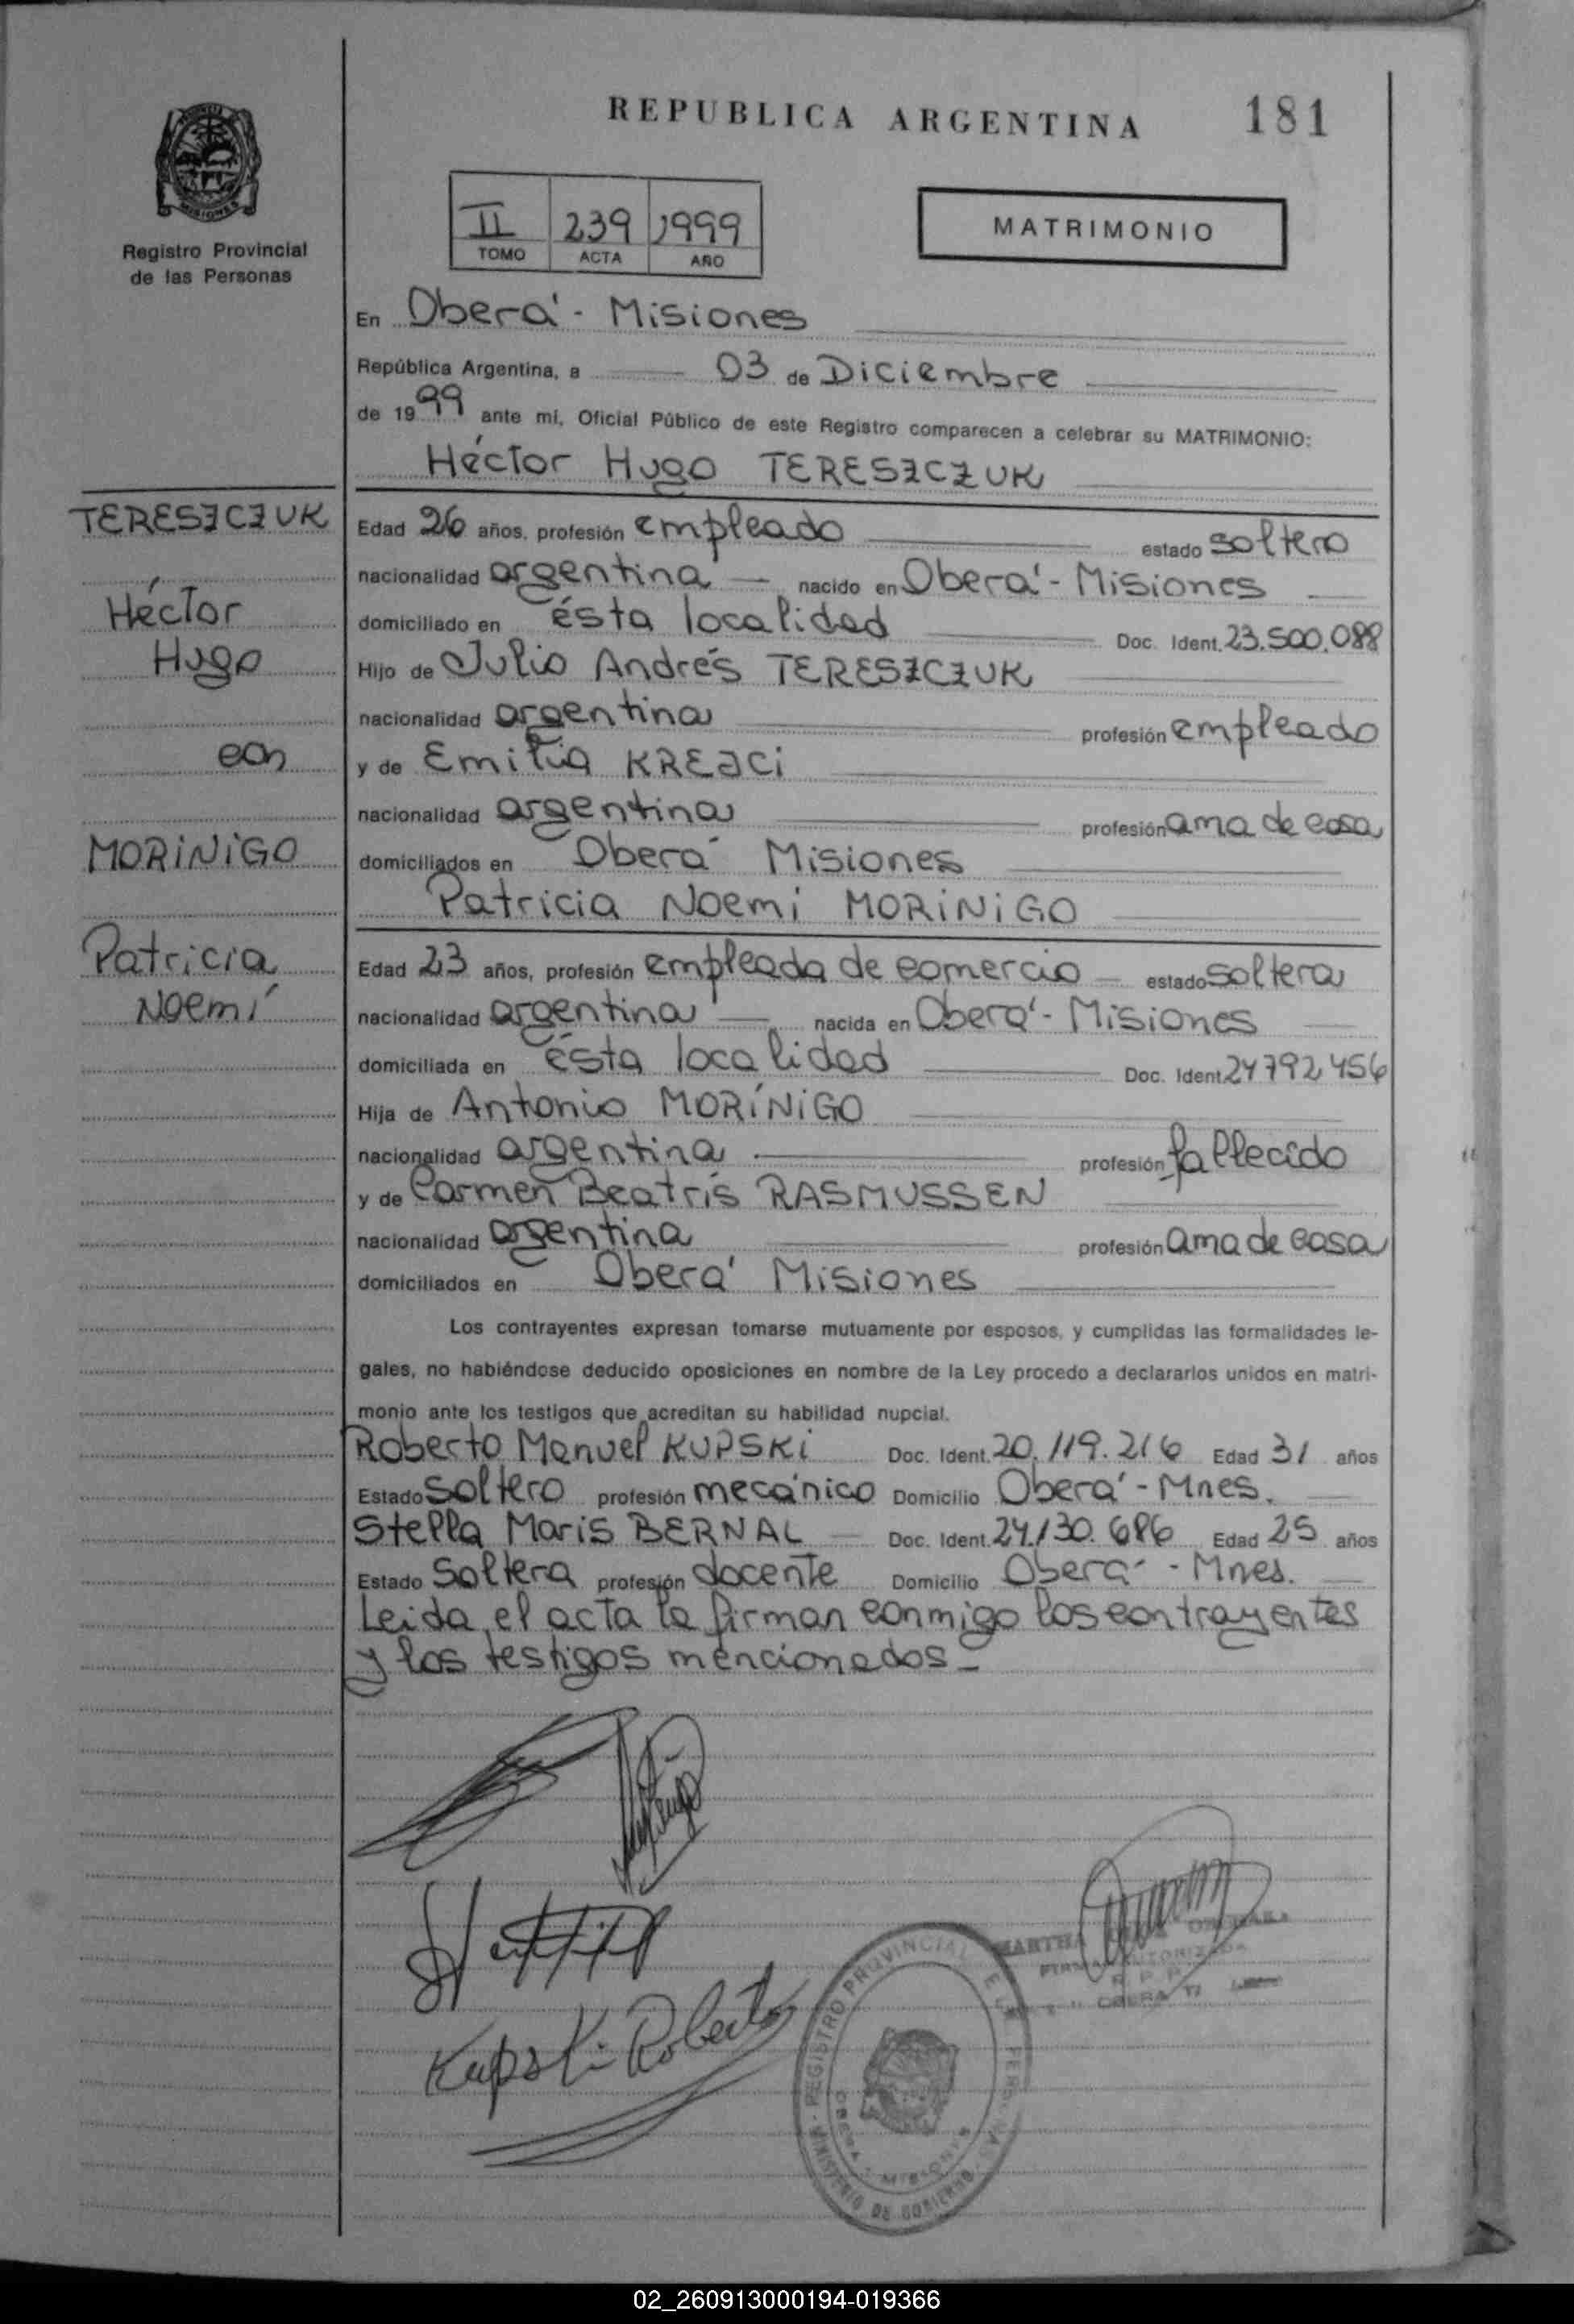 REPUBLICA ARGENTINA
181
MISIONES
Registro Provincial
de las Personas
II 239 1999
TOMO ACTA AÑO
MATRIMONIO
En Oberá - Misiones
República Argentina, a 03 de Diciembre
de 1999 ante mi, Oficial Público de este Registro comparecen a celebrar su MATRIMONIO:
Héctor Hugo TERESZCZUK
TERESZCZUK
Héctor
Hugo
con
MORiNiGO
Patricia
Noemí
Edad 26 años, profesión empleado estado soltero
nacionalidad argentina nacido en Oberá - Misiones
domiciliado en ésta localidad Doc. Ident. 23.500.088
Hijo de Julio Andrés TERESZCZUK
nacionalidad argentina profesión empleado
y de Emilia KREJCi
nacionalidad argentina profesión ama de casa
domiciliados en Oberá Misiones
Patricia Noemi MORiNiGO
Edad 23 años, profesión empleada de comercio estado soltera
nacionalidad argentina nacida en Oberá - Misiones
domiciliada en ésta localidad Doc. Ident. 24792456
Hija de Antonio MORÍNiGO
nacionalidad argentina profesión fallecido
y de Carmen Beatrís RASMUSSEN
nacionalidad argentina profesión ama de casa
domiciliados en Oberá Misiones
Los contrayentes expresan tomarse mutuamente por esposos, y cumplidas las formalidades le-
gales, no habiéndose deducido oposiciones en nombre de la Ley procedo a declararlos unidos en matri-
monio ante los testigos que acreditan su habilidad nupcial.
Roberto Manuel KUPSKi Doc. Ident. 20.119.216 Edad 31 años
Estado soltero profesión mecánico Domicilio Oberá - Mnes.
Stella Maris BERNAL Doc. Ident. 24.130.686 Edad 25 años
Estado Soltera profesión docente Domicilio Oberá - Mnes.
Leida el acta la firman conmigo los contrayentes
y los testigos mencionados -
Kupski Roberto
MARTHA
R. P. P.
OBERA
REGISTRO PROVINCIAL DE LAS PERSONAS
MINISTERIO DE GOBIERNO
OBERA - MISIONES
02_260913000194-019366